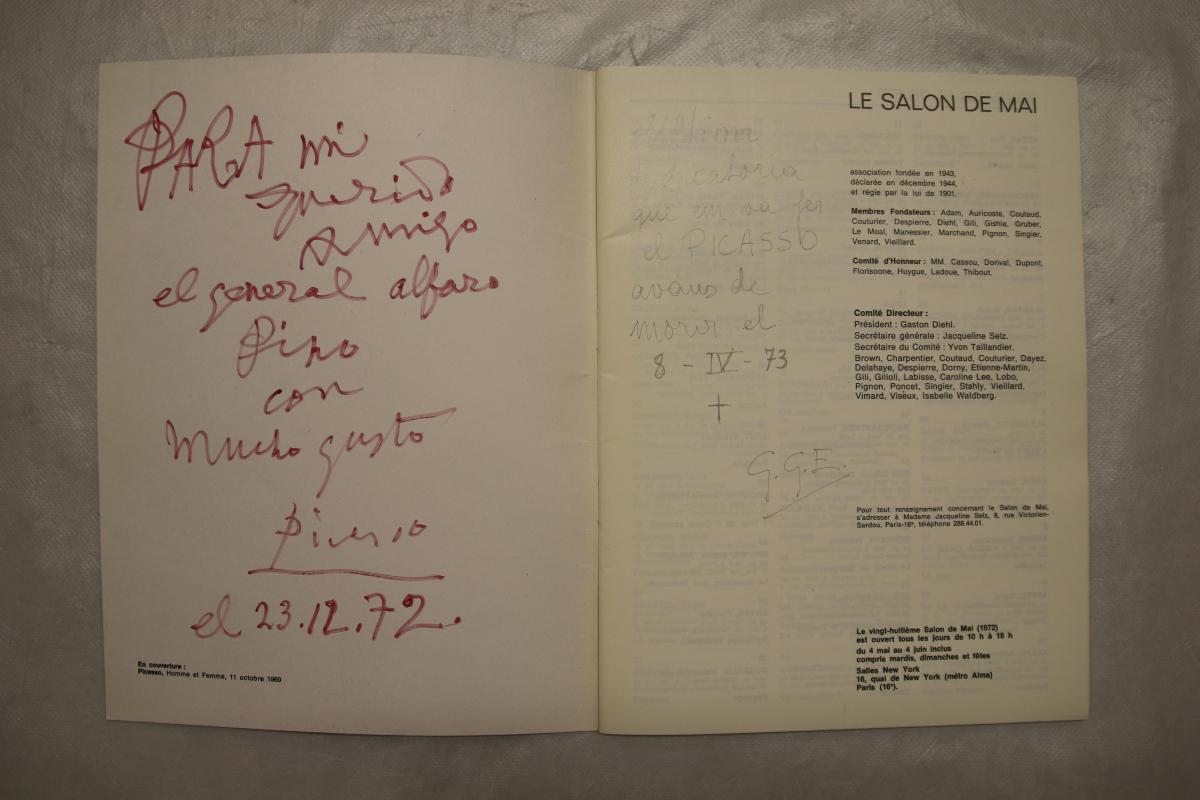 PARA mi
querido
amigo
el general alfaro
Pino
con
mucho gusto
Picasso
el 23.12.72.
En couverture :
Picasso, Homme et Femme, 11 octobre 1969
última
dedicatoria
que em va fer
el PICASSO
avans de
morir el
8 - IV - 73
G.G.E.
LE SALON DE MAI
association fondée en 1943,
déclarée en décembre 1944,
et régie par la loi de 1901.
Membres Fondateurs : Adam, Auricoste, Coutaud,
Couturier, Despierre, Diehl, Gili, Gishia, Gruber,
Le Moal, Manessier, Marchand, Pignon, Singier,
Venard, Vieillard.
Comité d'Honneur : MM. Cassou, Dorival, Dupont,
Florisoone, Huygue, Ladoue, Thibout.
Comité Directeur :
Président : Gaston Diehl.
Secrétaire générale : Jacqueline Selz.
Secrétaire du Comité : Yvon Taillandier.
Brown, Charpentier, Coutaud, Couturier, Dayez,
Delahaye, Despierre, Dorny, Etienne-Martin,
Gili, Gilioli, Labisse, Caroline Lee, Lobo,
Pignon, Poncet, Singier, Stahly, Vieillard,
Vimard, Viseux, Isabelle Waldberg.
Pour tout renseignement concernant le Salon de Mai,
s'adresser à Madame Jacqueline Selz, 8, rue Victorien-
Sardou, Paris-16e, téléphone 288.44.01.
Le vingt-huitième Salon de Mai (1972)
est ouvert tous les jours de 10 h à 18 h
du 4 mai au 4 juin inclus
compris mardis, dimanches et fêtes
Salles New York
16, quai de New York (métro Alma)
Paris (16e).